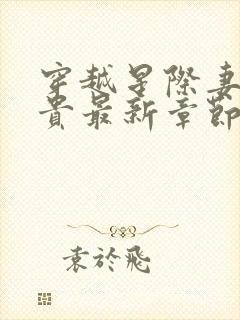 穿越星際妻
貴最新章節
袁於飛